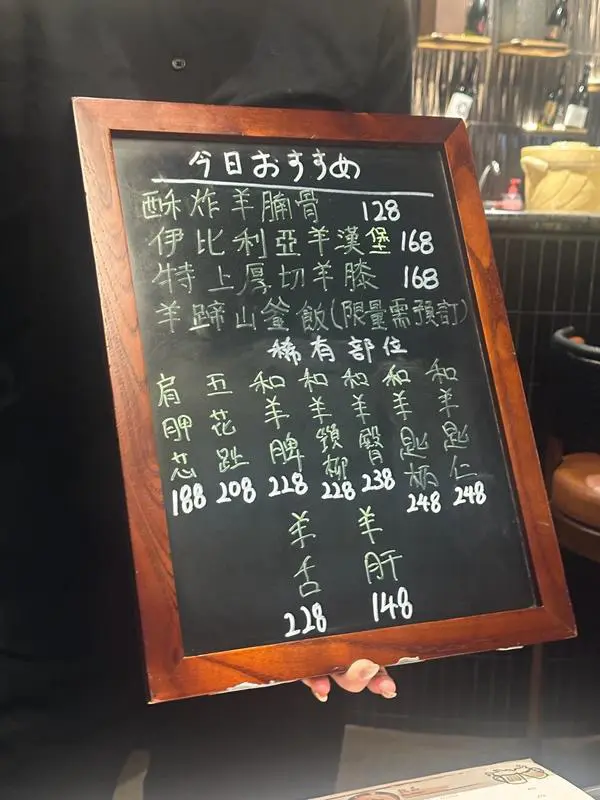 今日おすすめ
酥炸羊腩骨 128
伊比利亞羊漢堡 168
特上厚切羊膝 168
羊蹄山釜飯(限量需預訂)
稀有部位
肩胛芯 188
五花趾 208
和羊脾 228
和羊鎖柳 228
和羊臀 238
和羊匙柄 248
和羊匙仁 248
羊舌 228
羊肝 148